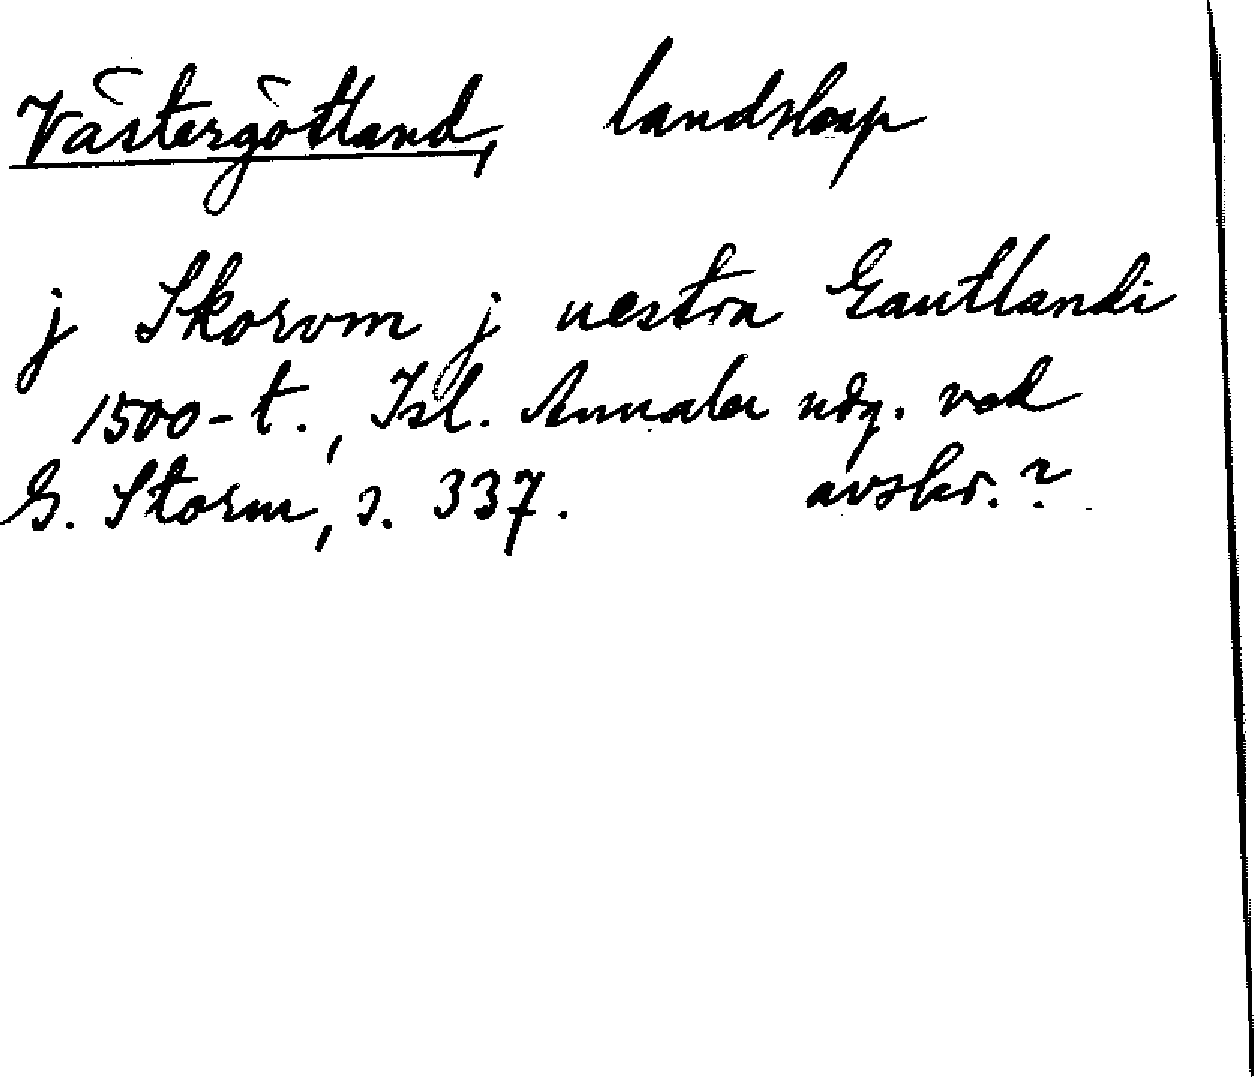 Västergötland, landskap
j Skorvm j uestra Gautlandi
1500-t., Isl. Annaler udg. ved
G. Storm, s. 337. avskr.?